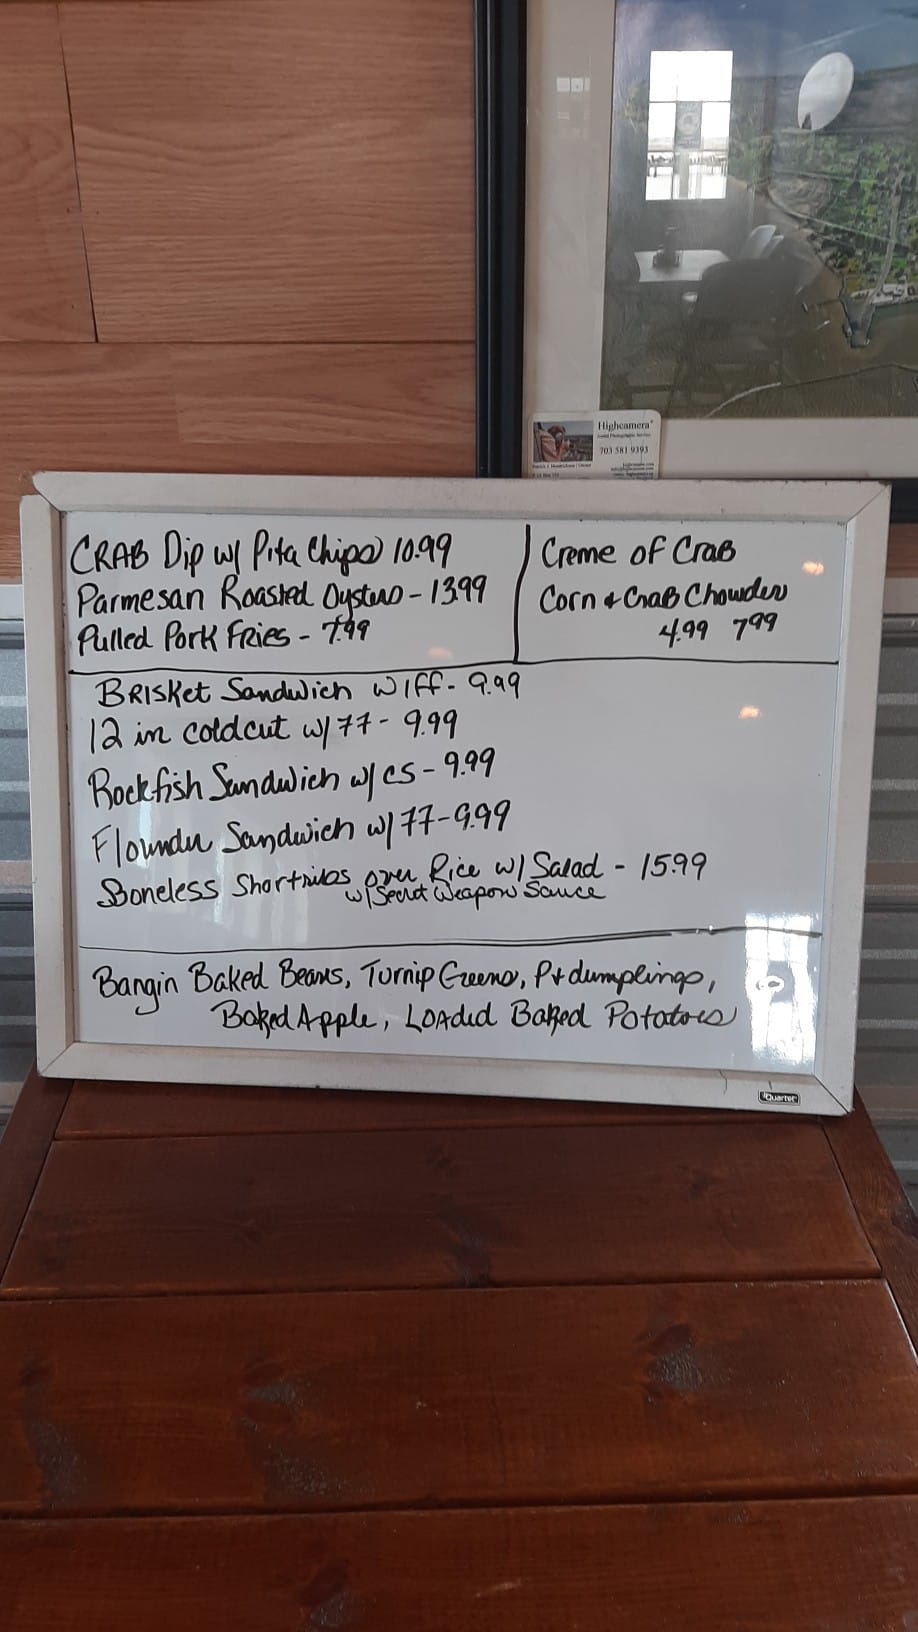 Highcamera
703 581 9393
CRAB Dip w/ Pita Chips 10.99
Parmesan Roasted Oysters - 13.99
Pulled Pork Fries - 7.99
Creme of Crab
Corn & Crab Chowder
4.99 7.99
Brisket Sandwich w/ff - 9.99
12 in coldcut w/ FF - 9.99
Rockfish Sandwich w/ CS - 9.99
Flounder Sandwich w/ FF - 9.99
Boneless Shortribs over Rice w/ Salad - 15.99
w/ Secret Weapon Sauce
Bangin Baked Beans, Turnip Greens, P+dumplings,
Baked Apple, Loaded Baked Potatoes
Quartet